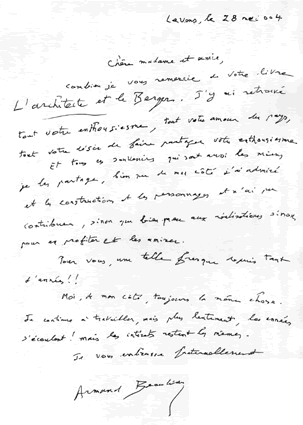 Lavons, le 28 mai 004
Chère madame et amie,
combien je vous remercie de votre livre
L'architecte et le Berger. J'y ai retrouvé
tout votre enthousiasme, tout votre amour du pays,
tout votre désir de faire partager votre enthousiasme
Et tous ces souvenirs qui sont aussi les miens,
je les partage, bien que de mon côté j'ai admiré
et la construction et les personnages et n'ai pu
contribuer, sinon que bien peu aux réalisations sinon
pour en profiter et les aimer.
Pour vous, une telle fresque depuis tant
d'années!!
Moi, de mon côté, toujours la même chose.
Je continue à travailler, mais plus lentement, les années
s'écoulent! mais les intérêts restent les mêmes.
Je vous embrasse fraternellement
Armand